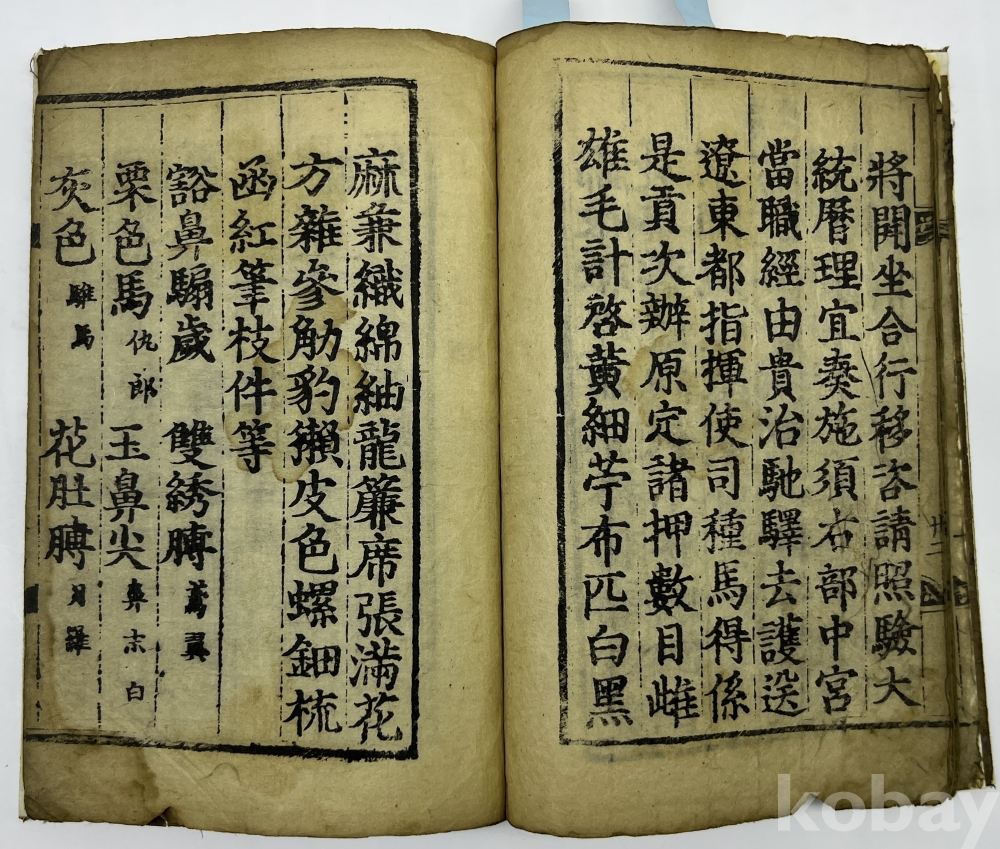 將開坐合行移咨請照驗大
統曆理宜奏施須右部中宮
當職經由貴治馳驛去護送
遼東都指揮使司種馬得係
是貢次辦原定諸押數目雌
雄毛計啓黃細苧布匹白黑
麻兼織綿紬龍簾席張滿花
方雜參觔豹獺皮色螺鈿梳
函紅筆枝件等
豁鼻騸歲 雙綉膊
栗色馬 仇郎 玉鼻尖 鼻末白
灰色 騅馬 花肚膊 月羅
廿二
kobay